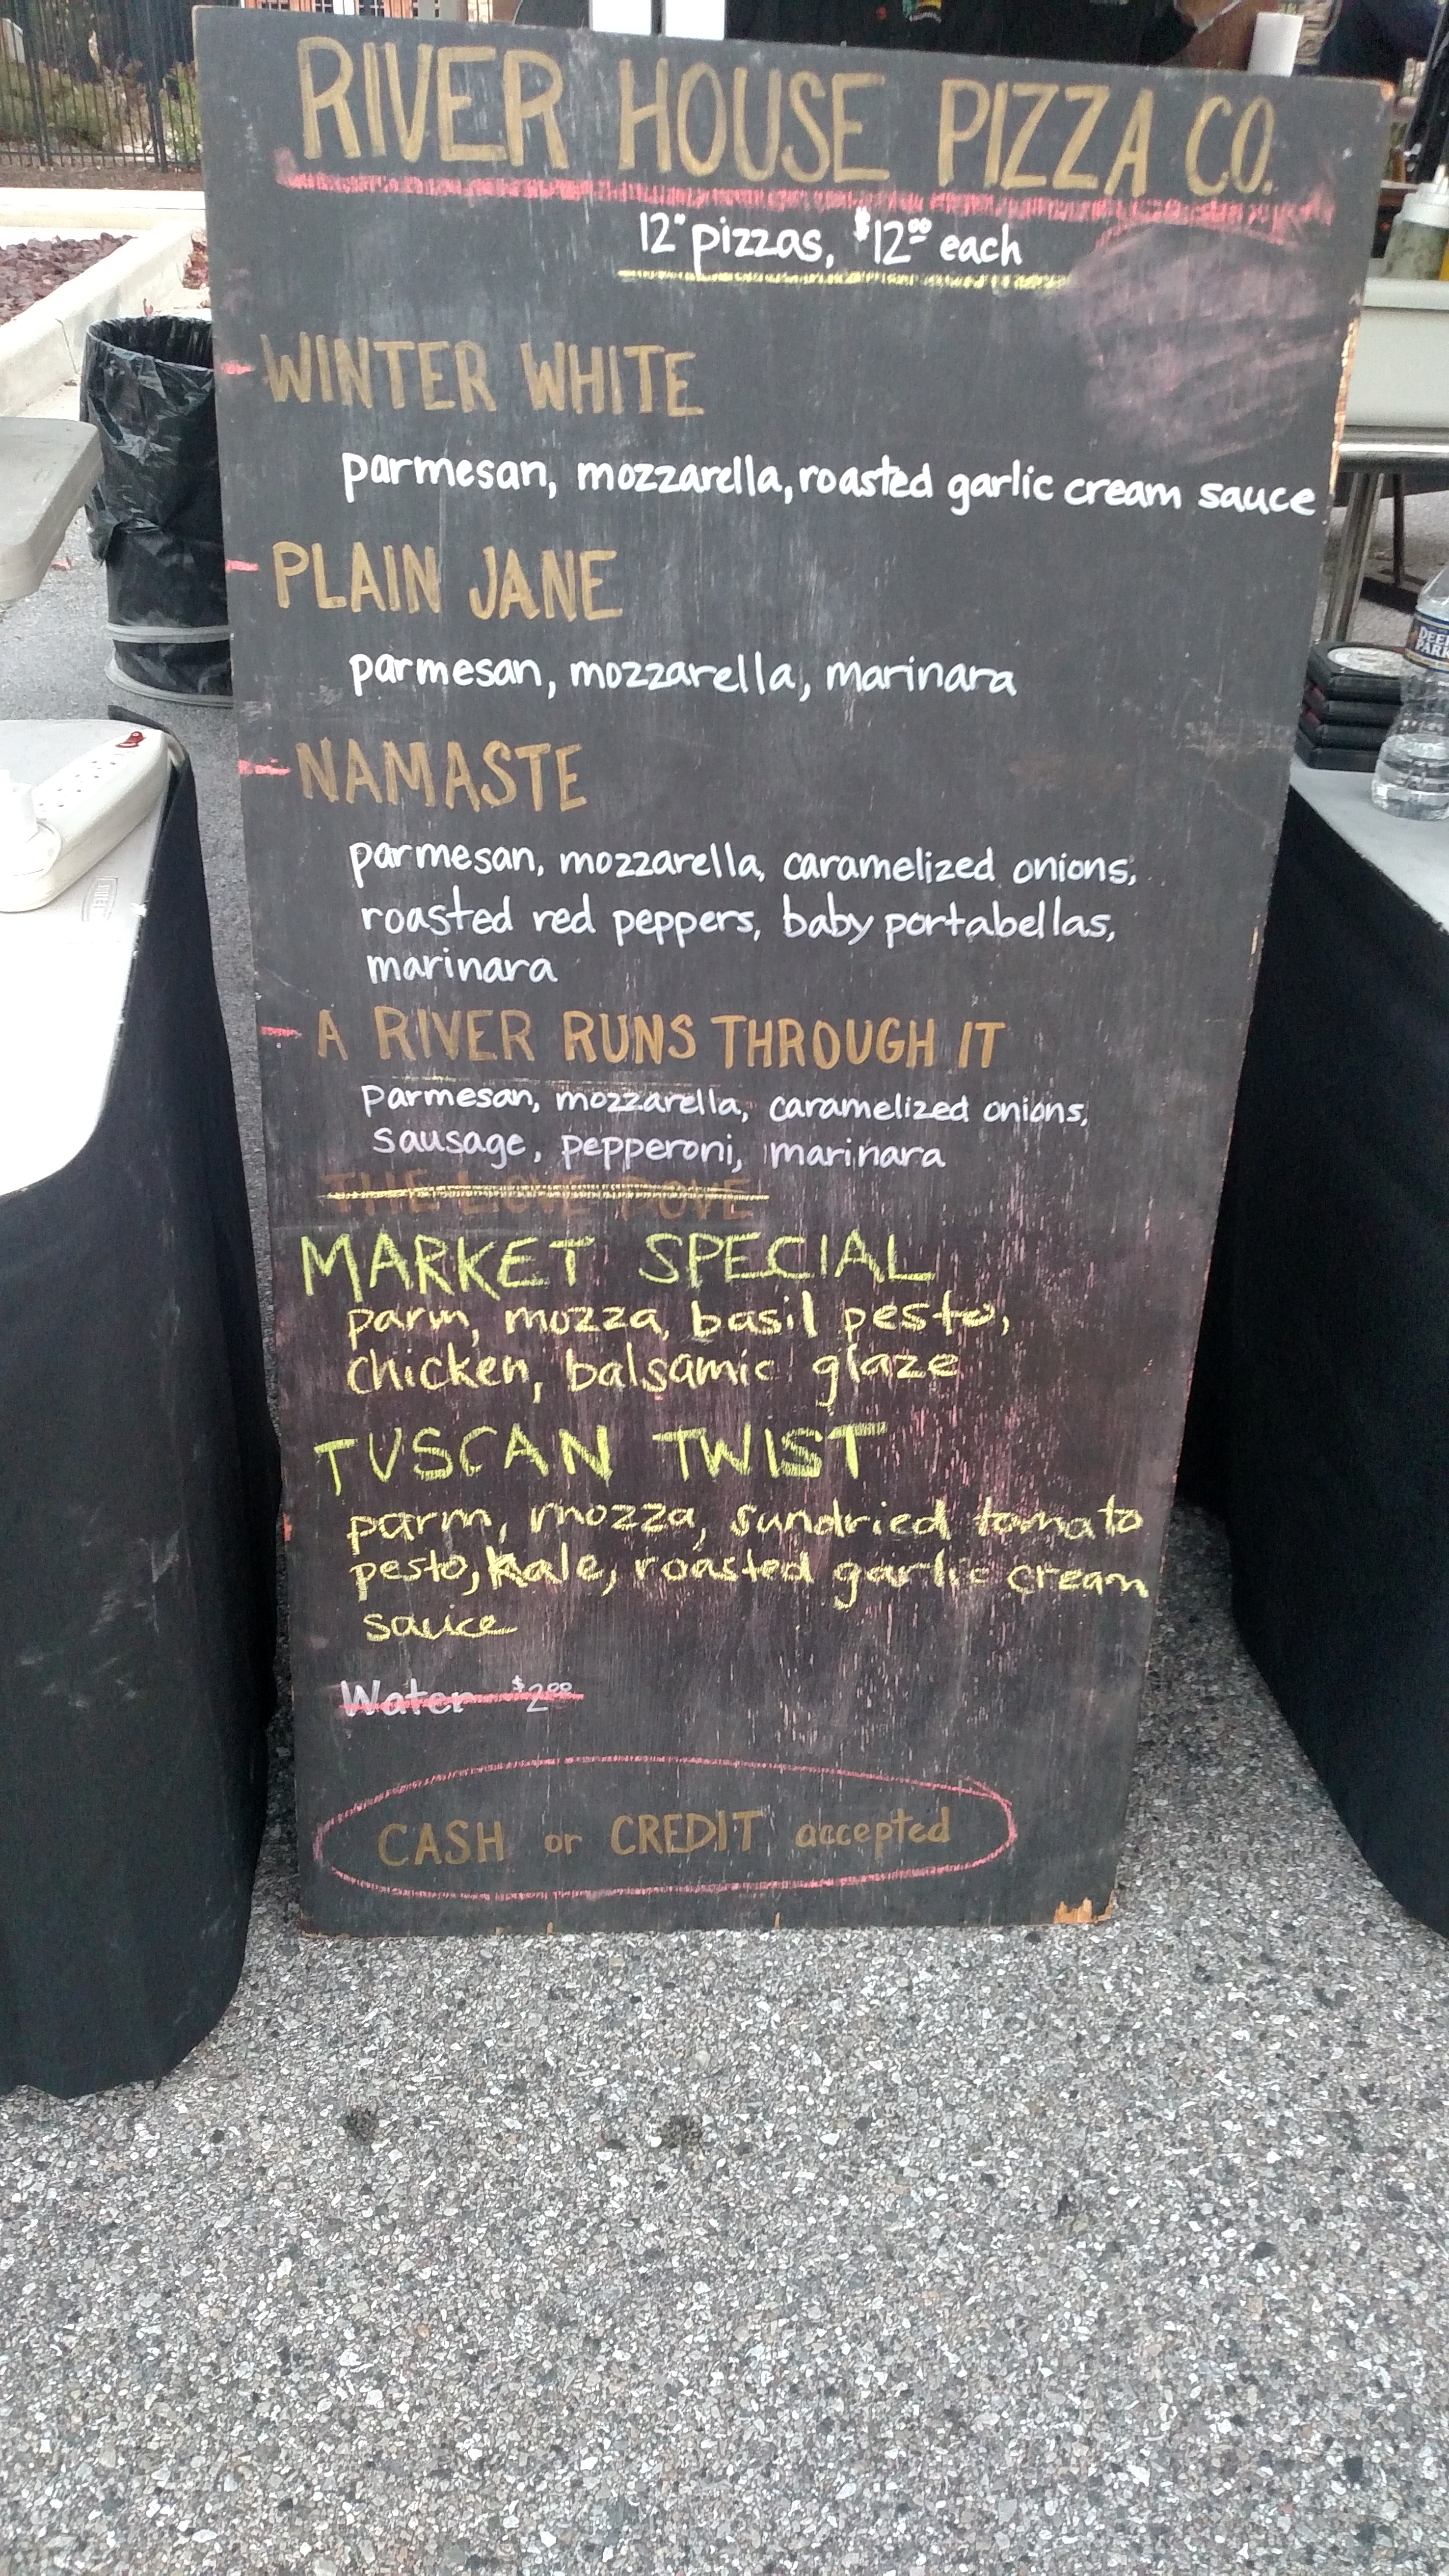 RIVER HOUSE PIZZA CO.
12" pizzas, $12.00 each
WINTER WHITE
parmesan, mozzarella, roasted garlic cream sauce
PLAIN JANE
parmesan, mozzarella, marinara
NAMASTE
parmesan, mozzarella, caramelized onions,
roasted red peppers, baby portabellas,
marinara
A RIVER RUNS THROUGH IT
parmesan, mozzarella, caramelized onions,
sausage, pepperoni, marinara
THE LOVE DOVE
MARKET SPECIAL
parm, mozza, basil pesto,
chicken, balsamic glaze
TUSCAN TWIST
parm, mozza, sundried tomato
pesto, kale, roasted garlic cream
sauce
Water $2.00
CASH or CREDIT accepted
DEER
PARK